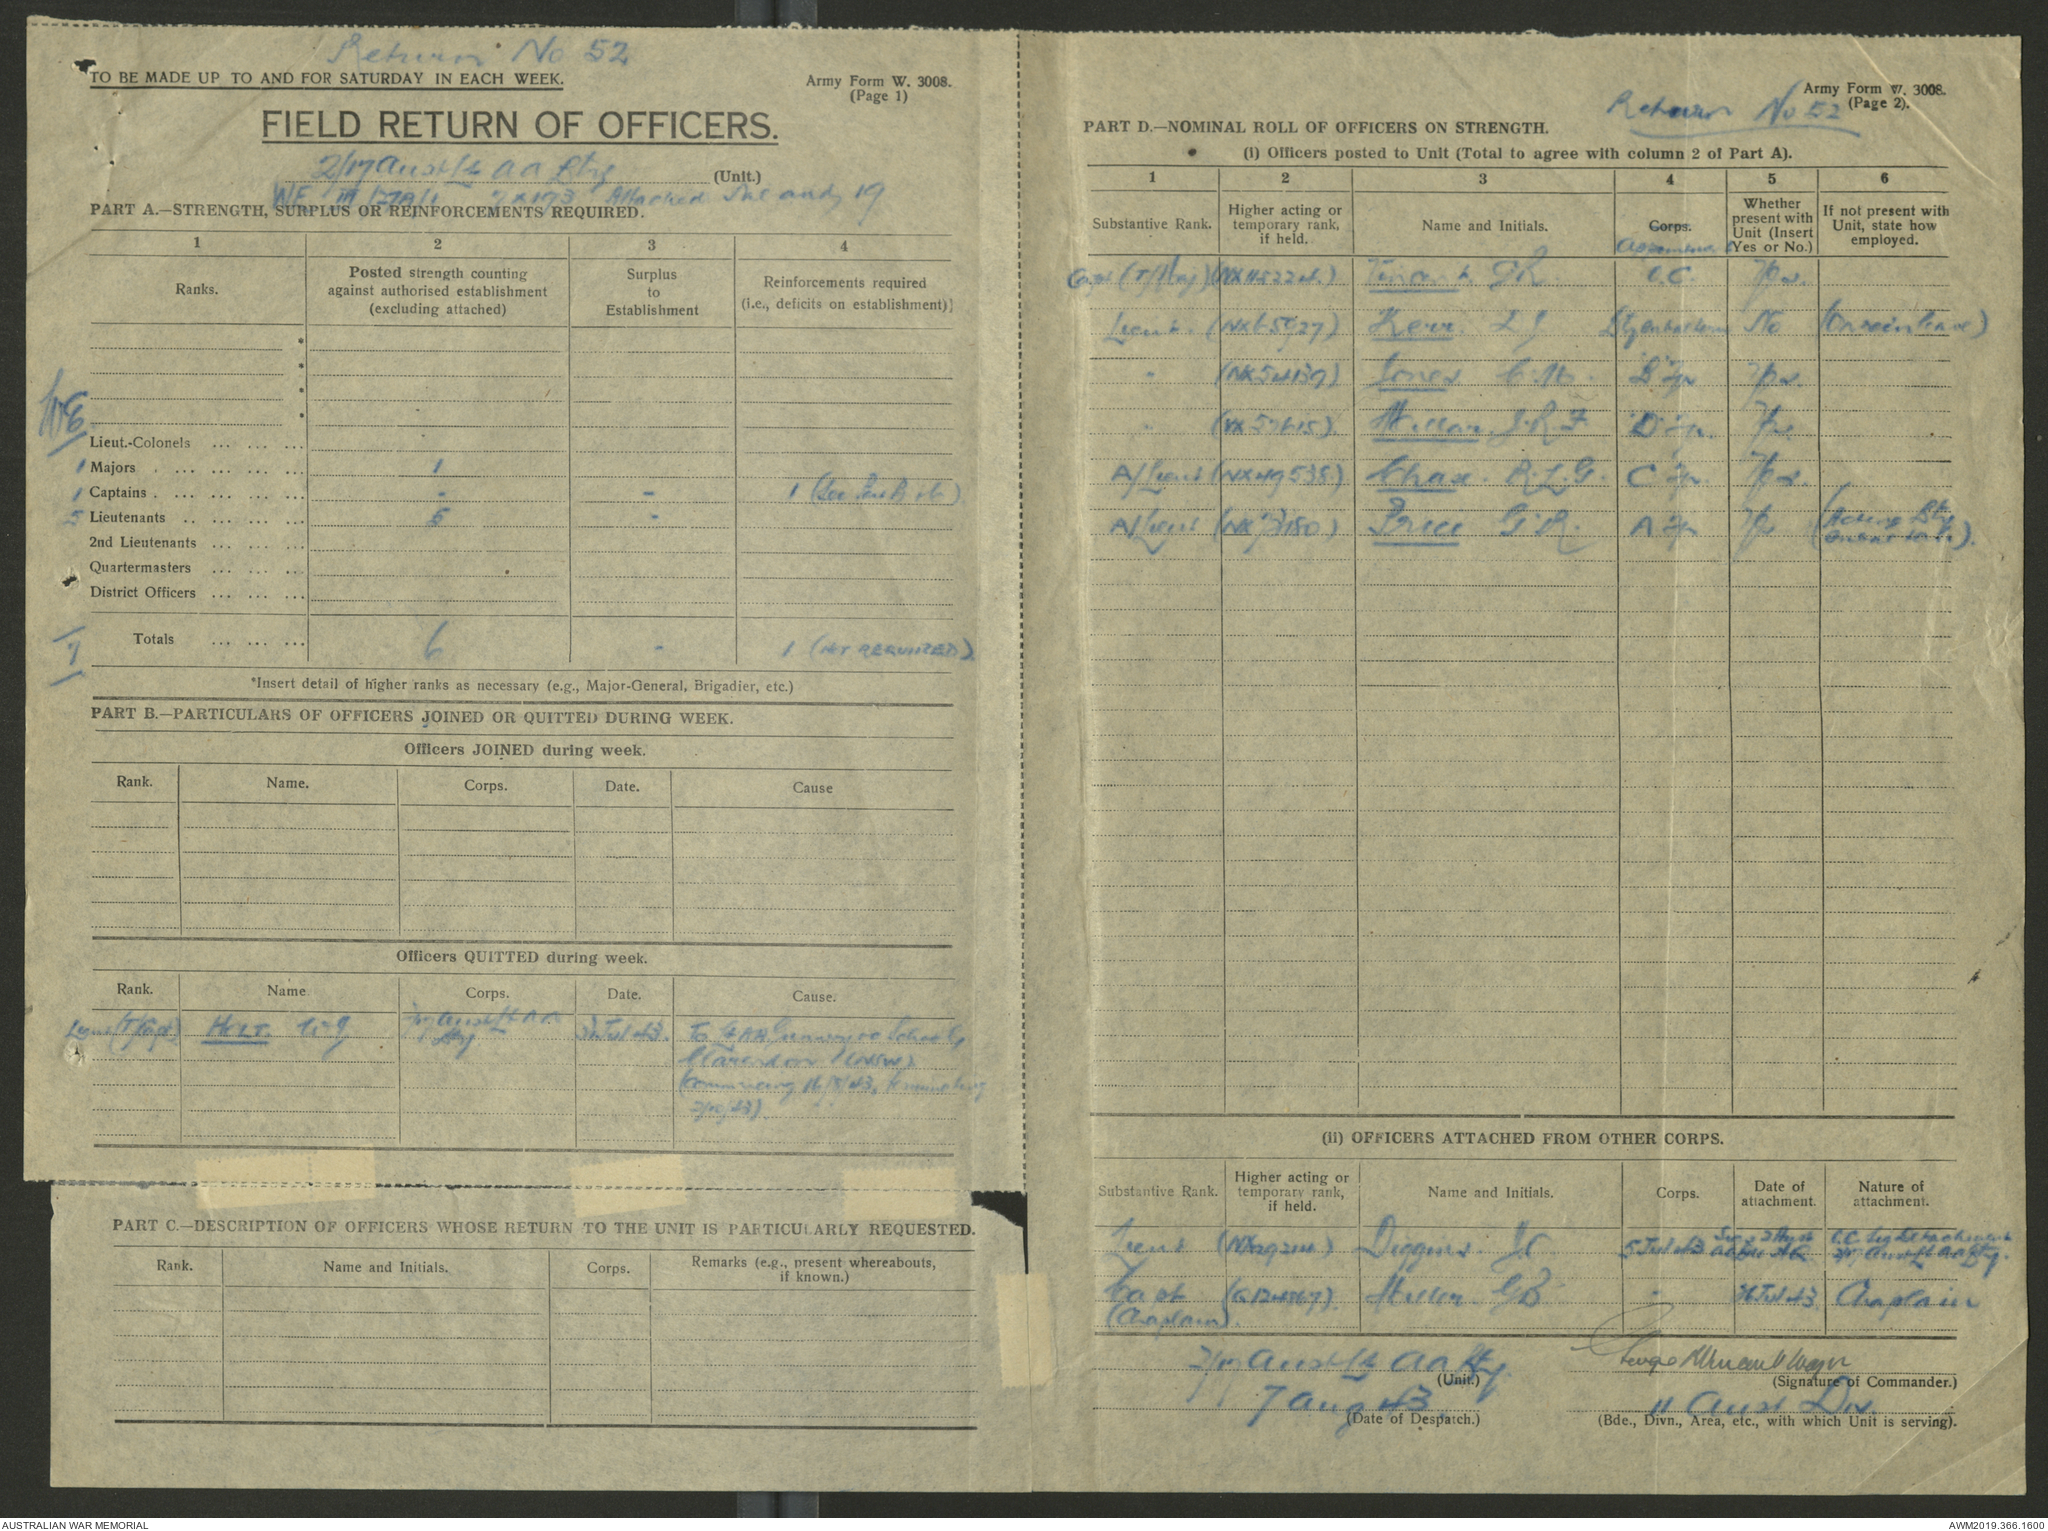 Return No 52
TO BE MADE UP TO AND FOR SATURDAY IN EACH WEEK.
Army Form W. 3008.
(Page 1)
FIELD RETURN OF OFFICERS.
2/17 Aust Lt AA Bty (Unit.)
WE III Attached 19
PART A.—STRENGTH, SURPLUS OR REINFORCEMENTS REQUIRED.
1 2 3 4
Ranks. Posted strength counting against authorised establishment (excluding attached) Surplus to Establishment Reinforcements required (i.e., deficits on establishment)
WE
Lieut.-Colonels ... ... ...
1 Majors ... ... ... 1
1 Captains ... ... ... - - 1 (See
5 Lieutenants ... ... ... 5 -
2nd Lieutenants ... ... ...
Quartermasters ... ... ...
District Officers ... ... ...
7 Totals ... ... ... 6 - 1 (NOT REQUIRED)
*Insert detail of higher ranks as necessary (e.g., Major-General, Brigadier, etc.)
PART B.—PARTICULARS OF OFFICERS JOINED OR QUITTED DURING WEEK.
Officers JOINED during week.
Rank. Name. Corps. Date. Cause
Officers QUITTED during week.
Rank. Name. Corps. Date. Cause.
Lieut (T/Capt) HOLT 2/17 Aust Lt AA Bty Jul 43. To School,
Clarendon (NSW)
2/10/43)
PART C.—DESCRIPTION OF OFFICERS WHOSE RETURN TO THE UNIT IS PARTICULARLY REQUESTED.
Rank. Name and Initials. Corps. Remarks (e.g., present whereabouts, if known.)
Army Form W. 3008.
(Page 2).
Return No 52
PART D.—NOMINAL ROLL OF OFFICERS ON STRENGTH.
(i) Officers posted to Unit (Total to agree with column 2 of Part A).
1 2 3 4 5 6
Substantive Rank. Higher acting or temporary rank, if held. Name and Initials. Corps. Whether present with Unit (Insert Yes or No.) If not present with Unit, state how employed.
Capt (T/Maj) Vincent G R O.C. Yes.
Lieut. Kerr. No
" Jones Yes.
" (VX57615) Millar J R F "D" Yes
A/Lieut (NX49535) Chax. R. L. G. C Yes.
A/Lieut Price G. R. A Yes (Acting Bty
(ii) OFFICERS ATTACHED FROM OTHER CORPS.
Substantive Rank. Higher acting or temporary rank, if held. Name and Initials. Corps. Date of attachment. Nature of attachment.
Lieut Diggins J C 5 Jul 43 O.C. Sig Detachment 2/17 Aust Lt AA Bty.
Capt (Chaplain). Millar G B - Jul 43 Chaplain
2/17 Aust Lt AA Bty.
(Unit.)
(Signature of Commander.)
7 Aug 43
(Date of Despatch.)
11 Aust Div.
(Bde., Divn., Area, etc., with which Unit is serving).
AUSTRALIAN WAR MEMORIAL
AWM2019.366.1600